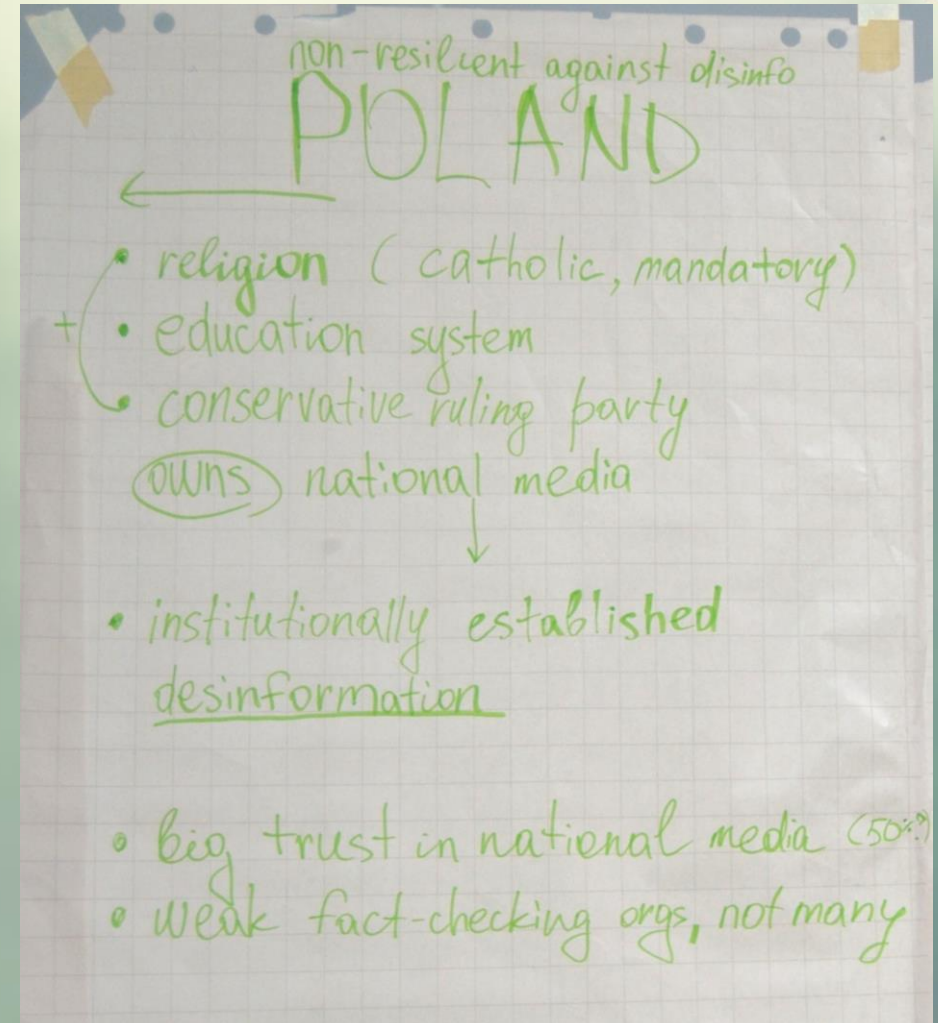 non-resilient against disinfo
POLAND
• religion (catholic, mandatory)
+ • education system
• conservative ruling party
owns national media
• institutionally established
desinformation
• big trust in national media (50%?)
• weak fact-checking orgs, not many